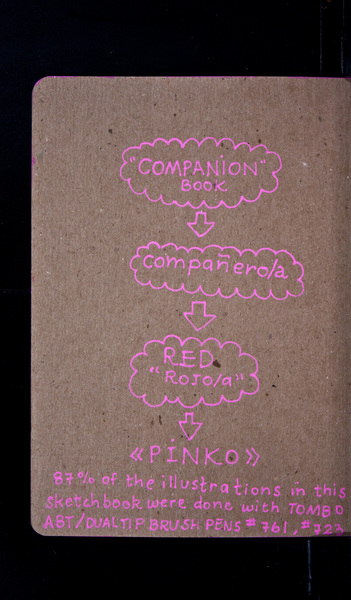 "COMPANION"
BOOK
compañero/a
RED
"ROJO/a"
«PINKO»
87% of the illustrations in this
sketchbook were done with TOMBO
ABT/DUAL TIP BRUSH PENS #761, #723